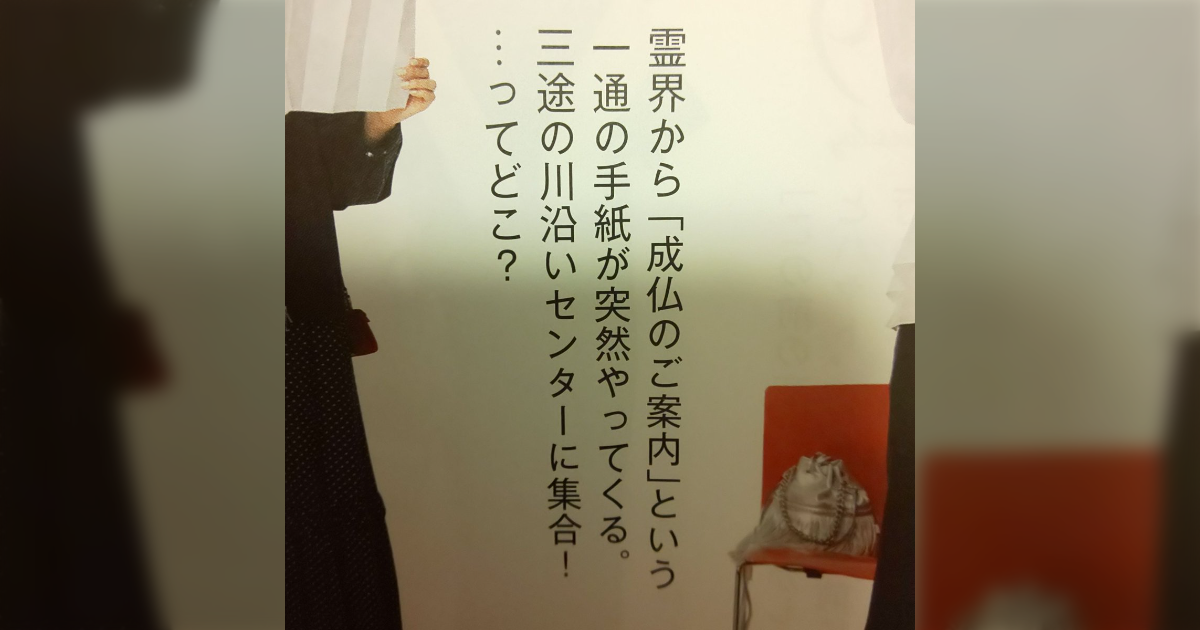 霊界から「成仏のご案内」という
一通の手紙が突然やってくる。
三途の川沿いセンターに集合！
…ってどこ？